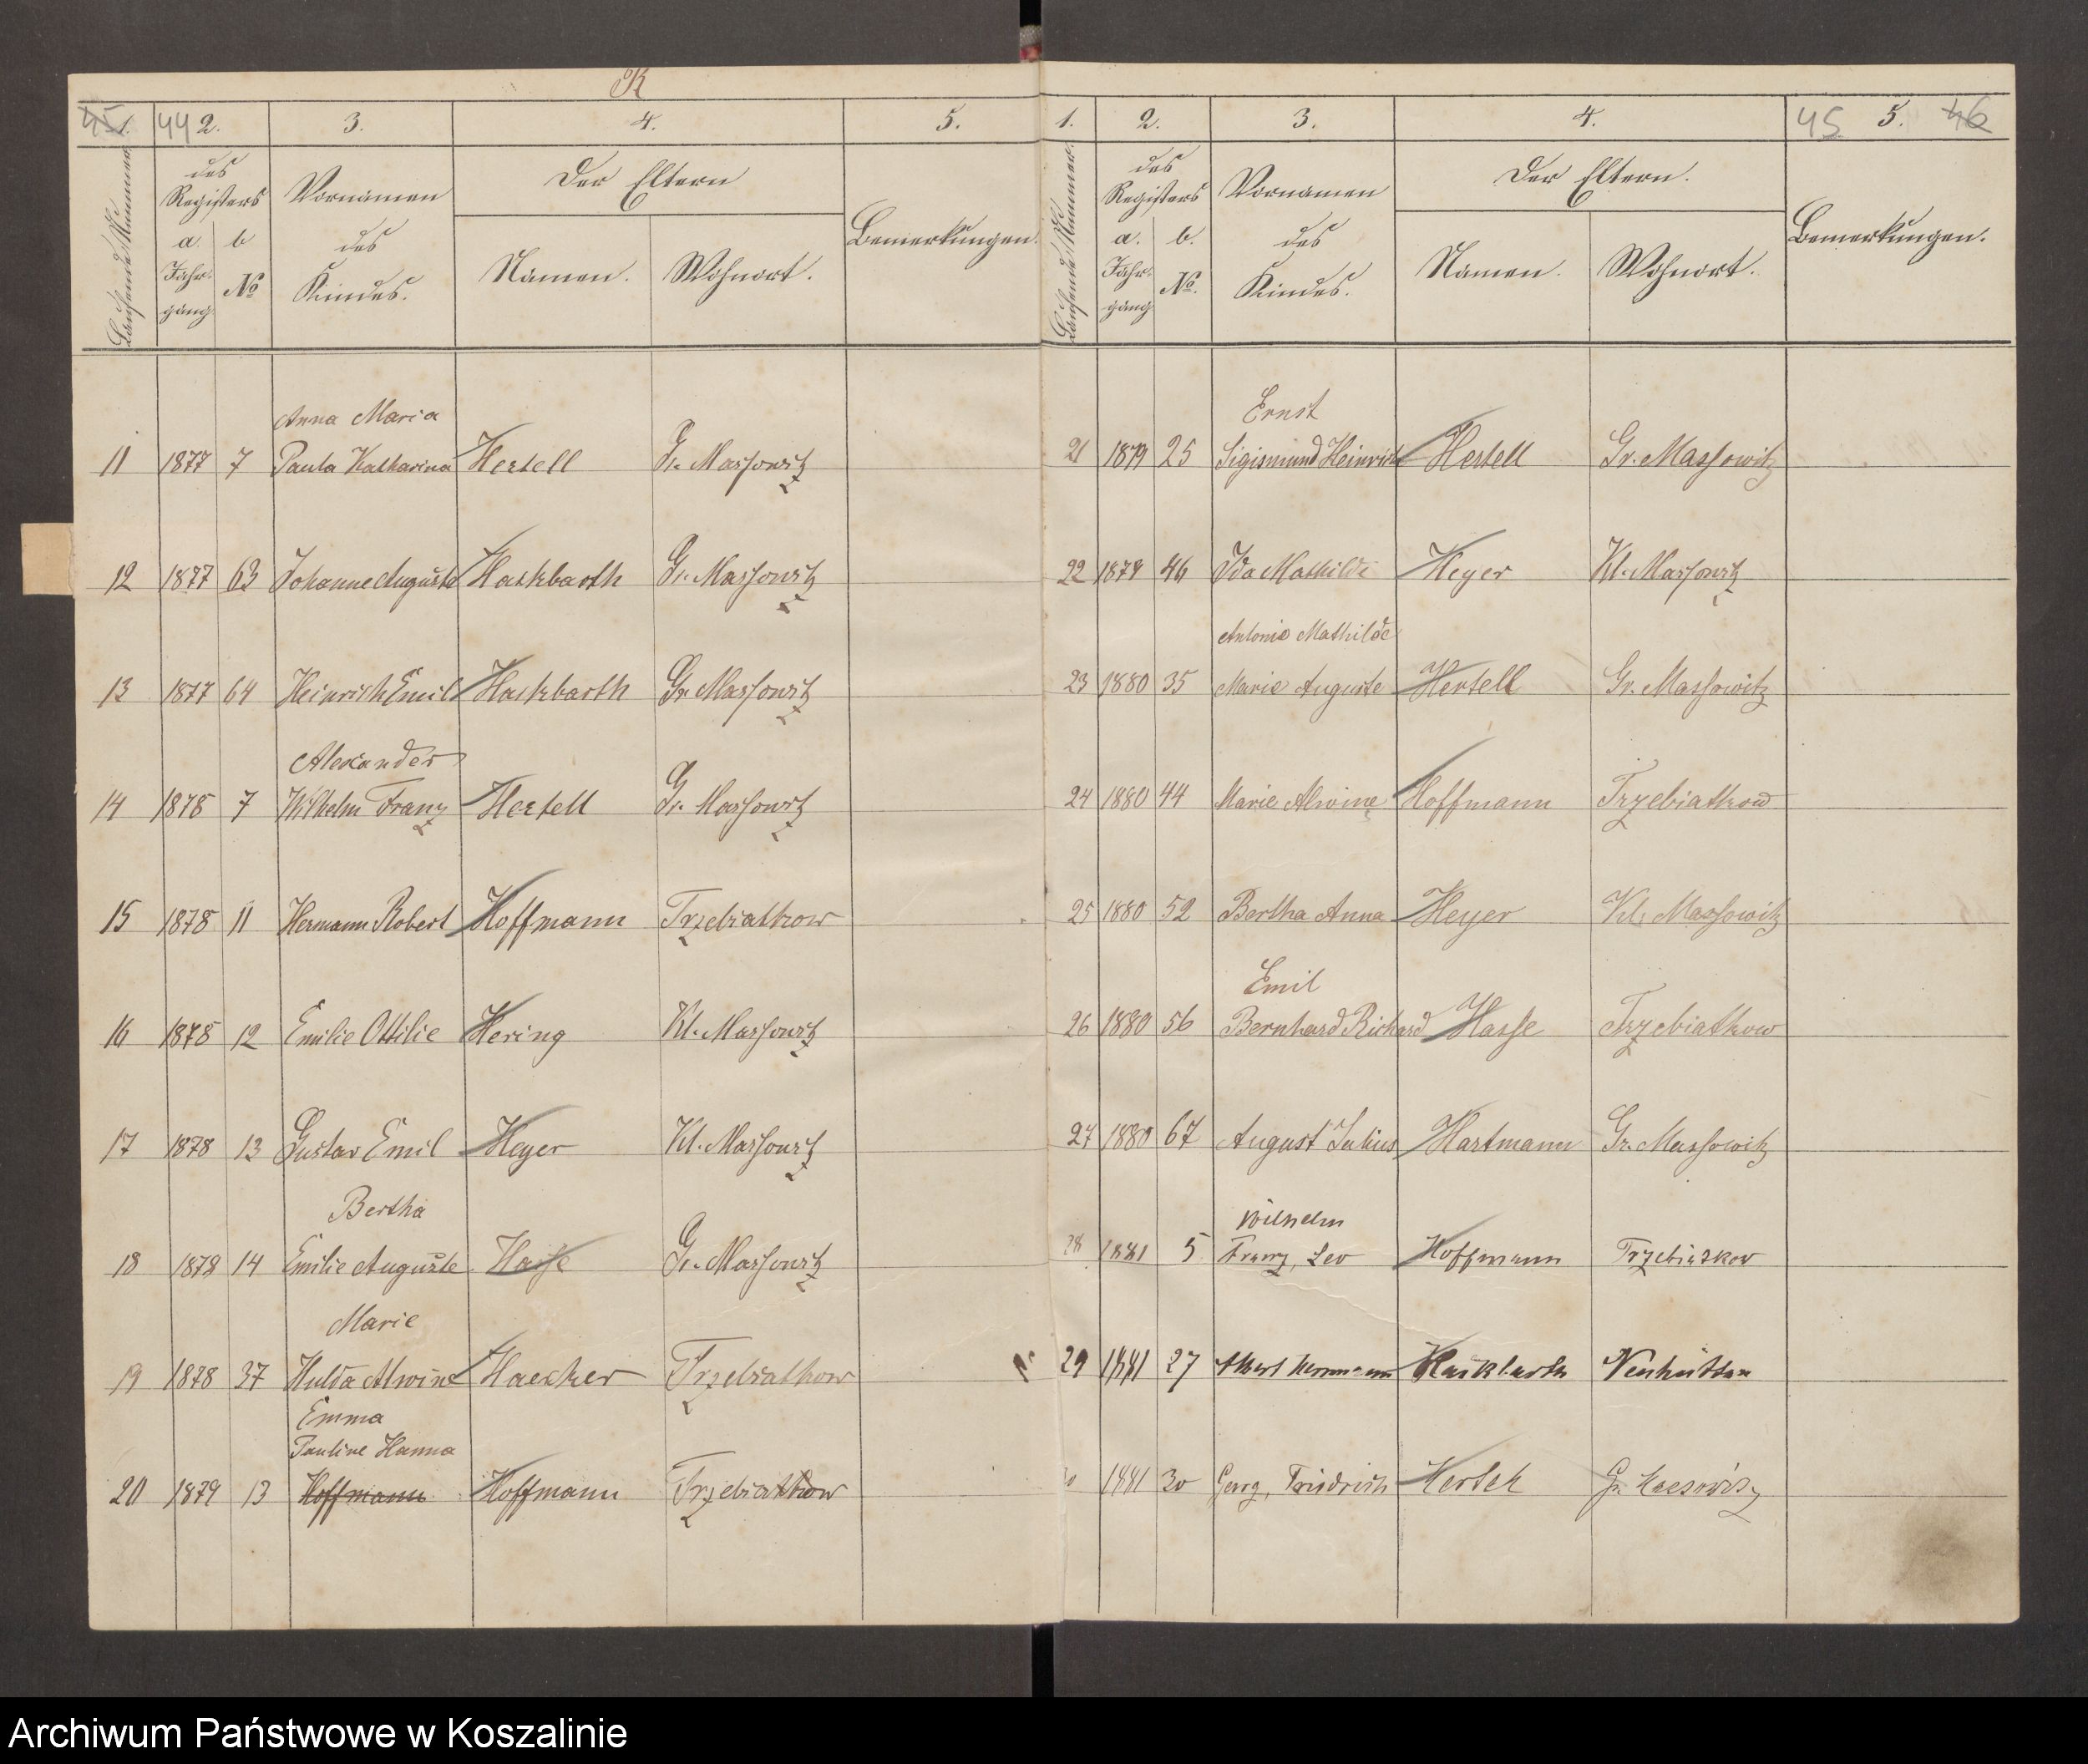 R
45 1. 44 2. 3. 4. 5.
Laufende Nummer
des Registers
a. Jahrgang
b №
Vornamen des Kindes.
Der Eltern
Namen. Wohnort.
Bemerkungen.
Anna Maria
11 1877 7 Paula Katharina Hertell Gr. Massowitz
12 1877 63 Johanne Auguste Hackbarth Gr. Massowitz
13 1877 64 Heinrich Emil Hackbarth Gr. Massowitz
Alexander
14 1878 7 Wilhelm Franz Hertell Gr. Massowitz
15 1878 11 Hermann Robert Hoffmann Trzebiatkow
16 1878 12 Emilie Ottilie Hering Kl. Massowitz
17 1878 13 Gustav Emil Heyer Kl. Massowitz
Bertha
18 1878 14 Emilie Auguste Hasse Gr. Massowitz
Marie
19 1878 37 Hulda Alwine Haecker Trzebiatkow
Emma
Pauline Hanna
20 1879 13 Hoffmann Hoffmann Trzebiatkow
1. 2. 3. 4. 45 5. 46
Laufende Nummer.
des Registers
a. Jahrgang
b. №.
Vornamen des Kindes.
Der Eltern.
Namen. Wohnort.
Bemerkungen.
Ernst
21 1879 25 Sigismund Heinrich Hertell Gr. Massowitz
22 1879 46 Ida Mathilde Heyer Kl. Massowitz
Antonie Mathilde
23 1880 35 Marie Auguste Hertell Gr. Massowitz
24 1880 44 Marie Alwine Hoffmann Trzebiatkow
25 1880 52 Bertha Anna Heyer Kl. Massowitz
Emil
26 1880 56 Bernhard Richard Hasse Trzebiatkow
27 1880 67 August Julius Hartmann Gr. Massowitz
Wilhelm
28 1881 5 Franz, Leo Hoffmann Trzebiatkow
29 1881 27 Albert Hermann Hackbarth Neuhütten
30 1881 30 Georg, Friedrich Hertell Gr. Massowitz
Archiwum Państwowe w Koszalinie